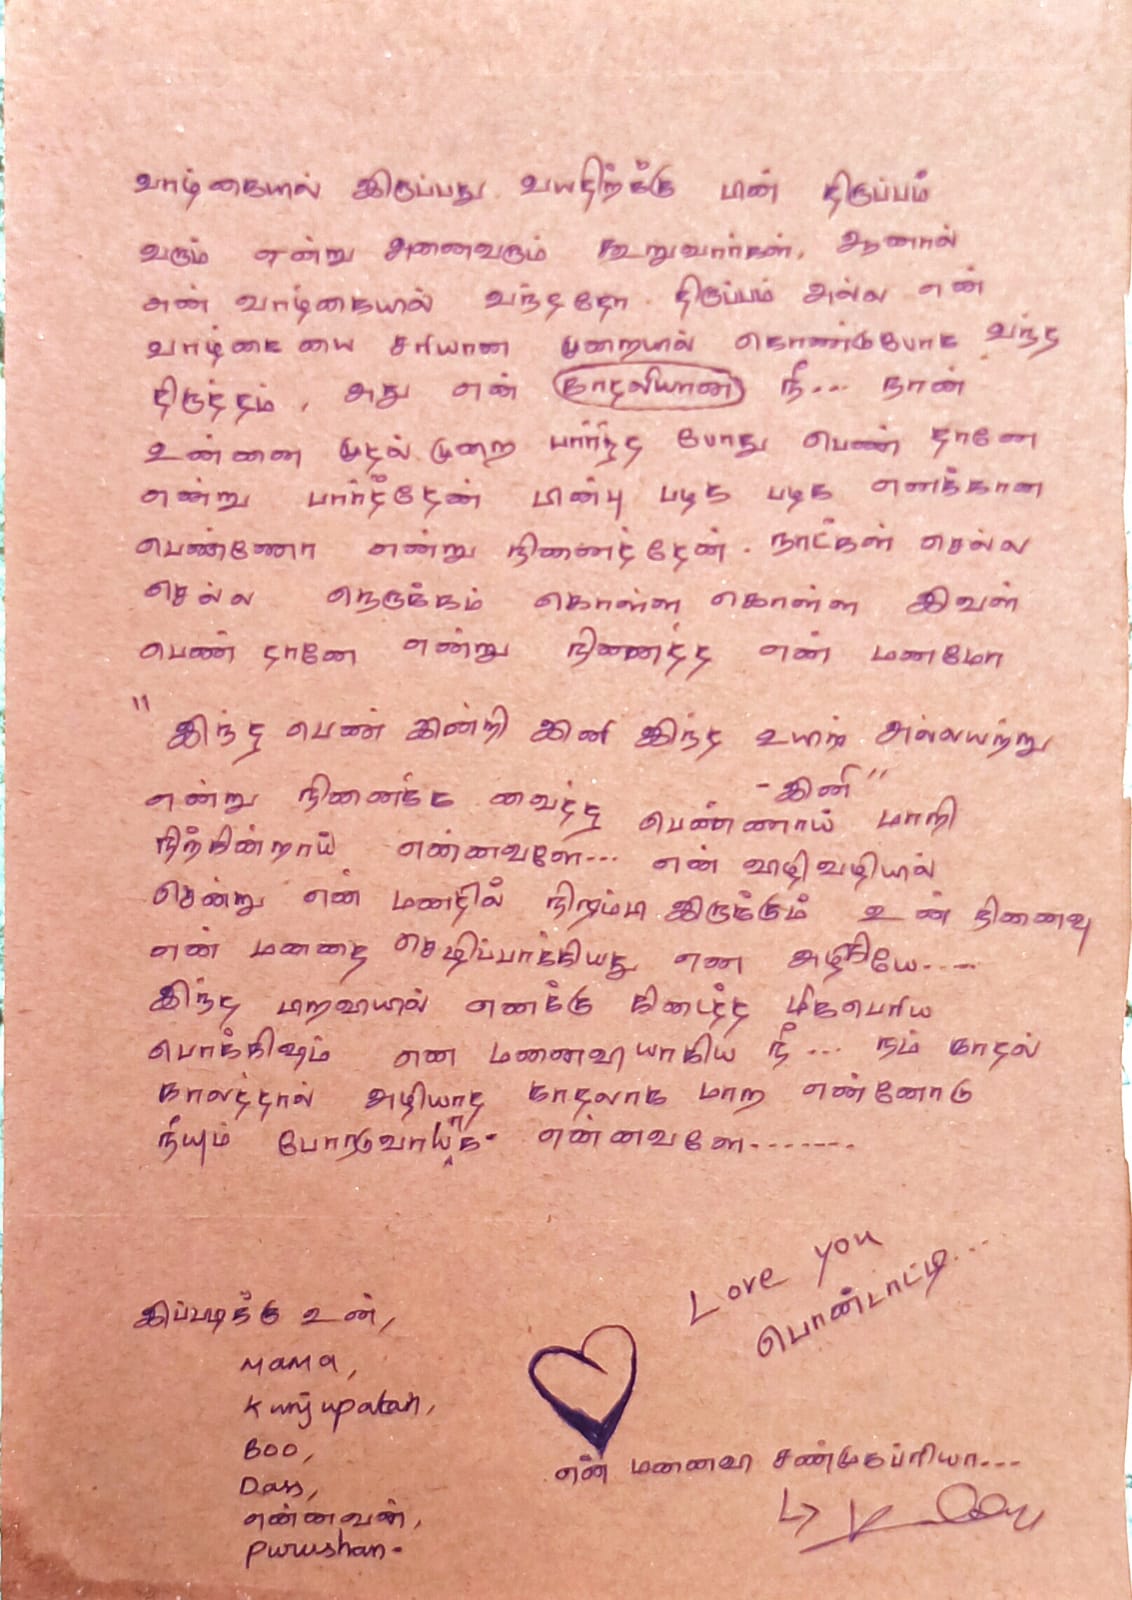 வாழ்கையில் இருப்பது வயதிற்க்கு பின் திருப்பம்
வரும் என்று அனைவரும் கூறுவார்கள், ஆனால்
என் வாழ்கையில் வந்ததோ திருப்பம் அல்ல என்
வாழ்கையை சரியான முறையில் கொண்டுபோக வந்த
திருத்தம், அது என் காதலியான நீ... நான்
உன்னை முதல் முறை பார்ர்த்த போது பெண் தானே
என்று பார்த்தேன் பின்பு படிக படிக எனக்கான
பெண்ணோ என்று நினைத்தேன். நாட்கள் செல்ல
செல்ல நெருக்கம் கொள்ள கொள்ள இவள்
பெண் தானே என்று நினைத்த என் மனமோ
" இந்த பெண் இன்றி இனி இந்த உயிர்
என்று நினைக்க வைத்து - இனி"
பெண்ணாய் மாறி
நிற்கின்றாய் என்னவளே... என் வழியில்
சென்று என் மனதில் நிரம்பி இருக்கும் உன் நினைவு
என் மனதை செழிப்பாக்கியது என அழகியே.....
இந்த பிறவியில் எனக்கு கிடைத்த மிகபெரிய
பொக்கிஷம் என் மனைவியாகிய நீ... நம் காதல்
காலத்தால் அழியாத காதலாக மாற என்னோடு
நீயும் போராடுவாயாக- என்னவளே........
Love you
பொண்டாட்டி....
இப்படிக்கு உன்,
Mama,
Kunjupatan,
Boo,
Dass,
என்னவன்,
Purushan-
என் மனைவி சண்முகப்ரியா...